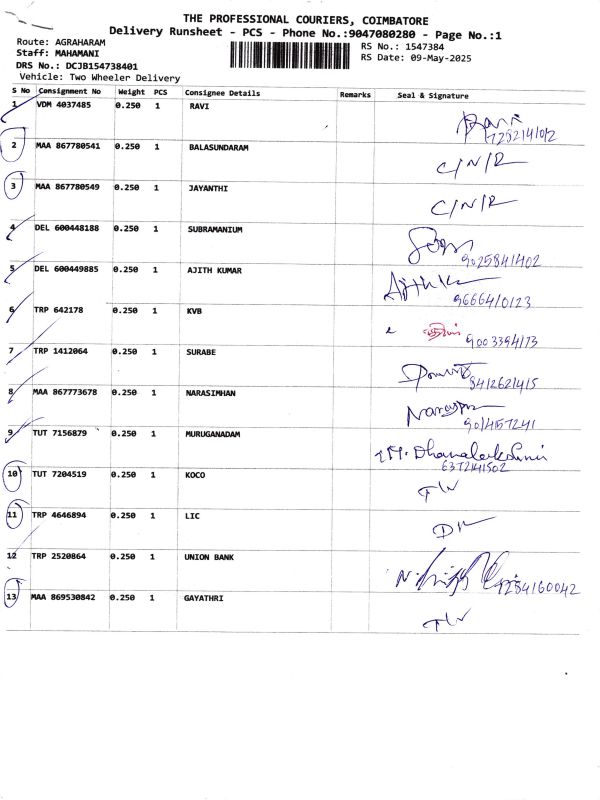 THE PROFESSIONAL COURIERS, COIMBATORE
Delivery Runsheet - PCS - Phone No.:9047080280 - Page No.:1
Route: AGRAHARAM
Staff: MAHAMANI
DRS No.: DCJB154738401
Vehicle: Two Wheeler Delivery
RS No.: 1547384
RS Date: 09-May-2025
S No Consignment No Weight PCS Consignee Details Remarks Seal & Signature
1 VDM 4037485 0.250 1 RAVI
7282141012
2 MAA 867780541 0.250 1 BALASUNDARAM C/N/R
3 MAA 867780549 0.250 1 JAYANTHI C/N/R
4 DEL 600448188 0.250 1 SUBRAMANIUM
9025841402
5 DEL 600449885 0.250 1 AJITH KUMAR
9666410123
6 TRP 642178 0.250 1 KVB
9003394173
7 TRP 1412064 0.250 1 SURABE
8412621415
8 MAA 867773678 0.250 1 NARASIMHAN
9014157241
9 TUT 7156879 0.250 1 MURUGANADAM M. Dhanalakshmi
6372141502
10 TUT 7204519 0.250 1 KOCO
11 TRP 4646894 0.250 1 LIC
12 TRP 2520864 0.250 1 UNION BANK
7284160042
13 MAA 869530842 0.250 1 GAYATHRI